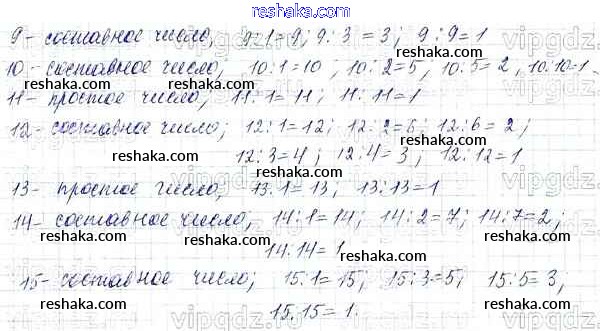 reshaka.com
9- составное число, 9:1=9, 9:3=3; 9:9=1
reshaka.com reshaka.com reshaka.com
10- составное число; 10:1=10, 10:2=5, 10:5=2, 10:10=1
11- простое число, 11:1=11, 11:11=1
reshaka.com reshaka.com
12- составное число; 12:1=12; 12:2=6; 12:6=2;
12:3=4; 12:4=3; 12:12=1
reshaka.com reshaka.com reshaka.com
13- простое число, 13:1=13, 13:13=1
reshaka.com reshaka.com reshaka.com
14- составное число, 14:1=14; 14:2=7; 14:7=2;
reshaka.com reshaka.com reshaka.com
14:14=1
15- составное число; 15:1=15, 15:3=5; 15:5=3,
reshaka.com reshaka.com reshaka.com
15:15=1.
reshaka.com